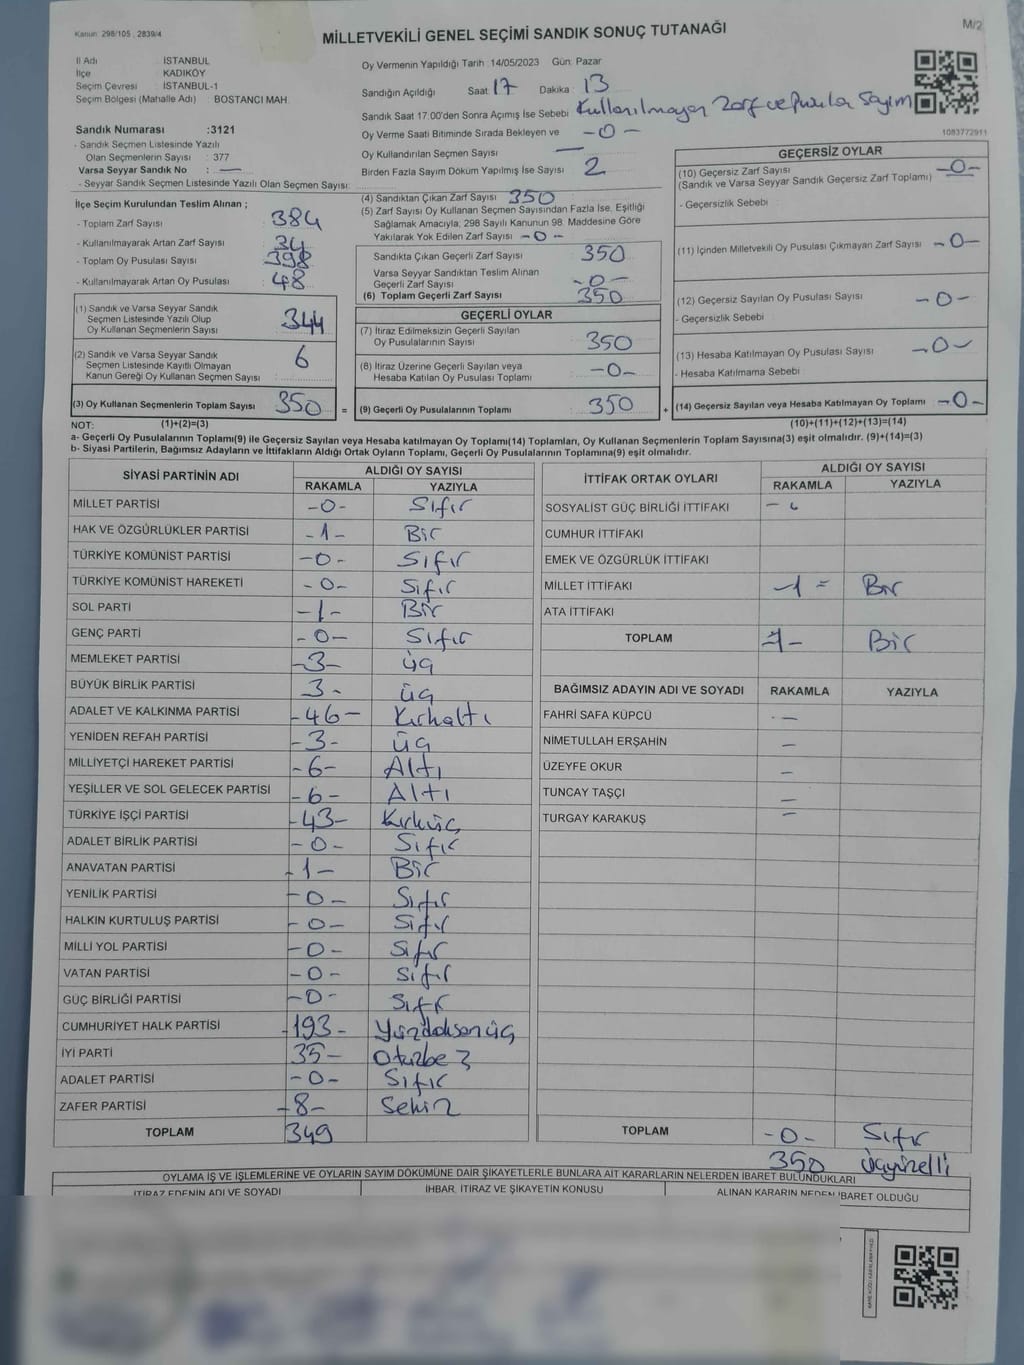 Kanun: 298/105, 2839/4
MİLLETVEKİLİ GENEL SEÇİMİ SANDIK SONUÇ TUTANAĞI
M/2
İl Adı : İSTANBUL
İlçe : KADIKÖY
Seçim Çevresi : İSTANBUL-1
Seçim Bölgesi (Mahalle Adı) : BOSTANCI MAH.
Oy Vermenin Yapıldığı Tarih :14/05/2023 Gün: Pazar
Sandığın Açıldığı Saat: 17 Dakika: 13
Sandık Saat 17.00'den Sonra Açımış İse Sebebi Kullanılmayan Zarf ve Pusula Sayım
Oy Verme Saati Bitiminde Sırada Bekleyen ve -0-
Oy Kullandırılan Seçmen Sayısı
Birden Fazla Sayım Döküm Yapılmış İse Sayısı 2
1083772911
Sandık Numarası :3121
- Sandık Seçmen Listesinde Yazılı
Olan Seçmenlerin Sayısı : 377
Varsa Seyyar Sandık No : —
- Seyyar Sandık Seçmen Listesinde Yazılı Olan Seçmen Sayısı:
İlçe Seçim Kurulundan Teslim Alınan ;
- Toplam Zarf Sayısı : 384
- Kullanılmayarak Artan Zarf Sayısı : 34
- Toplam Oy Pusulası Sayısı : 398
- Kullanılmayarak Artan Oy Pusulası : 48
(1) Sandık ve Varsa Seyyar Sandık
Seçmen Listesinde Yazılı Olup
Oy Kullanan Seçmenlerin Sayısı : 344
(2) Sandık ve Varsa Seyyar Sandık
Seçmen Listesinde Kayıtlı Olmayan
Kanun Gereği Oy Kullanan Seçmen Sayısı : 6
(3) Oy Kullanan Seçmenlerin Toplam Sayısı : 350 =
(4) Sandıktan Çıkan Zarf Sayısı 350
(5) Zarf Sayısı Oy Kullanan Seçmen Sayısından Fazla İse, Eşitliği
Sağlamak Amacıyla; 298 Sayılı Kanunun 98. Maddesine Göre
Yakılarak Yok Edilen Zarf Sayısı : -0-
Sandıkta Çıkan Geçerli Zarf Sayısı : 350
Varsa Seyyar Sandıktan Teslim Alınan
Geçerli Zarf Sayısı : -0-
(6) Toplam Geçerli Zarf Sayısı : 350
GEÇERLİ OYLAR
(7) İtiraz Edilmeksizin Geçerli Sayılan
Oy Pusulalarının Sayısı : 350
(8) İtiraz Üzerine Geçerli Sayılan veya
Hesaba Katılan Oy Pusulası Toplamı : -0-
(9) Geçerli Oy Pusulalarının Toplamı : 350 +
GEÇERSİZ OYLAR
(10) Geçersiz Zarf Sayısı -0-
(Sandık ve Varsa Seyyar Sandık Geçersiz Zarf Toplamı)
- Geçersizlik Sebebi :
(11) İçinden Milletvekili Oy Pusulası Çıkmayan Zarf Sayısı -0-
(12) Geçersiz Sayılan Oy Pusulası Sayısı : -0-
- Geçersizlik Sebebi :
(13) Hesaba Katılmayan Oy Pusulası Sayısı : -0-
- Hesaba Katılmama Sebebi :
(14) Geçersiz Sayılan veya Hesaba Katılmayan Oy Toplamı : -0-
NOT: (1)+(2)=(3)
(10)+(11)+(12)+(13)=(14)
a- Geçerli Oy Pusulalarının Toplamı(9) ile Geçersiz Sayılan veya Hesaba katılmayan Oy Toplamı(14) Toplamları, Oy Kullanan Seçmenlerin Toplam Sayısına(3) eşit olmalıdır. (9)+(14)=(3)
b- Siyasi Partilerin, Bağımsız Adayların ve İttifakların Aldığı Ortak Oyların Toplamı, Geçerli Oy Pusulalarının Toplamına(9) eşit olmalıdır.
SİYASİ PARTİNİN ADI ALDIĞI OY SAYISI
RAKAMLA YAZIYLA
MİLLET PARTİSİ -0- Sıfır
HAK VE ÖZGÜRLÜKLER PARTİSİ -1- Bir
TÜRKİYE KOMÜNİST PARTİSİ -0- Sıfır
TÜRKİYE KOMÜNİST HAREKETİ -0- Sıfır
SOL PARTİ -1- Bir
GENÇ PARTİ -0- Sıfır
MEMLEKET PARTİSİ -3- üç
BÜYÜK BİRLİK PARTİSİ 3- üç
ADALET VE KALKINMA PARTİSİ -46- Kırkaltı
YENİDEN REFAH PARTİSİ -3- üç
MİLLİYETÇİ HAREKET PARTİSİ -6- Altı
YEŞİLLER VE SOL GELECEK PARTİSİ -6- Altı
TÜRKİYE İŞÇİ PARTİSİ -43- Kırküç
ADALET BİRLİK PARTİSİ -0- Sıfır
ANAVATAN PARTİSİ -1- Bir
YENİLİK PARTİSİ -0- Sıfır
HALKIN KURTULUŞ PARTİSİ -0- Sıfır
MİLLİ YOL PARTİSİ -0- Sıfır
VATAN PARTİSİ -0- Sıfır
GÜÇ BİRLİĞİ PARTİSİ -0- Sıfır
CUMHURİYET HALK PARTİSİ -193- Yüzdoksanüç
İYİ PARTİ 35- Otuzbeş
ADALET PARTİSİ -0- Sıfır
ZAFER PARTİSİ -8- Sekiz
TOPLAM 349
İTTİFAK ORTAK OYLARI ALDIĞI OY SAYISI
RAKAMLA YAZIYLA
SOSYALİST GÜÇ BİRLİĞİ İTTİFAKI
CUMHUR İTTİFAKI
EMEK VE ÖZGÜRLÜK İTTİFAKI
MİLLET İTTİFAKI -1- Bir
ATA İTTİFAKI
TOPLAM -1- Bir
BAĞIMSIZ ADAYIN ADI VE SOYADI RAKAMLA YAZIYLA
FAHRİ SAFA KÜPCÜ —
NİMETULLAH ERŞAHİN —
ÜZEYFE OKUR —
TUNCAY TAŞÇI —
TURGAY KARAKUŞ —
TOPLAM -0- Sıfır
350 üçyüzelli
OYLAMA İŞ VE İŞLEMLERİNE VE OYLARIN SAYIM DÖKÜMÜNE DAİR ŞİKAYETLERLE BUNLARA AİT KARARLARIN NELERDEN İBARET BULUNDUKLARI
İTİRAZ EDENİN ADI VE SOYADI İHBAR, İTİRAZ VE ŞİKAYETİN KONUSU ALINAN KARARIN NEDEN İBARET OLDUĞU